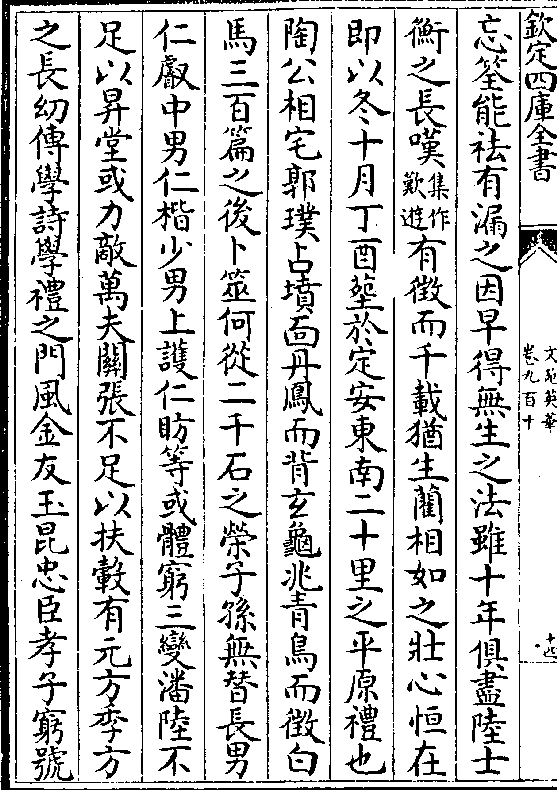 欽定四庫全書
文苑英華
卷九百十
忘筌能祛有漏之因早得無生之法雖十年俱盡陸士
衡之長嘆集作歎逝有徴而千載猶生藺相如之壯心恒在
即以冬十月丁酉塟於定安東南二十里之平原禮也
陶公相宅郭璞占墳面丹鳳而背玄龜兆青鳥而徴白
馬三百篇之後卜筮何從二千石之榮子孫無替長男
仁叡中男仁楷少男上護仁昉等或體窮三變潘陸不
足以昇堂或力敵萬夫關張不足以扶轂有元方季方
之長幼傳學詩學禮之門風金友玉昆忠臣孝子窮號